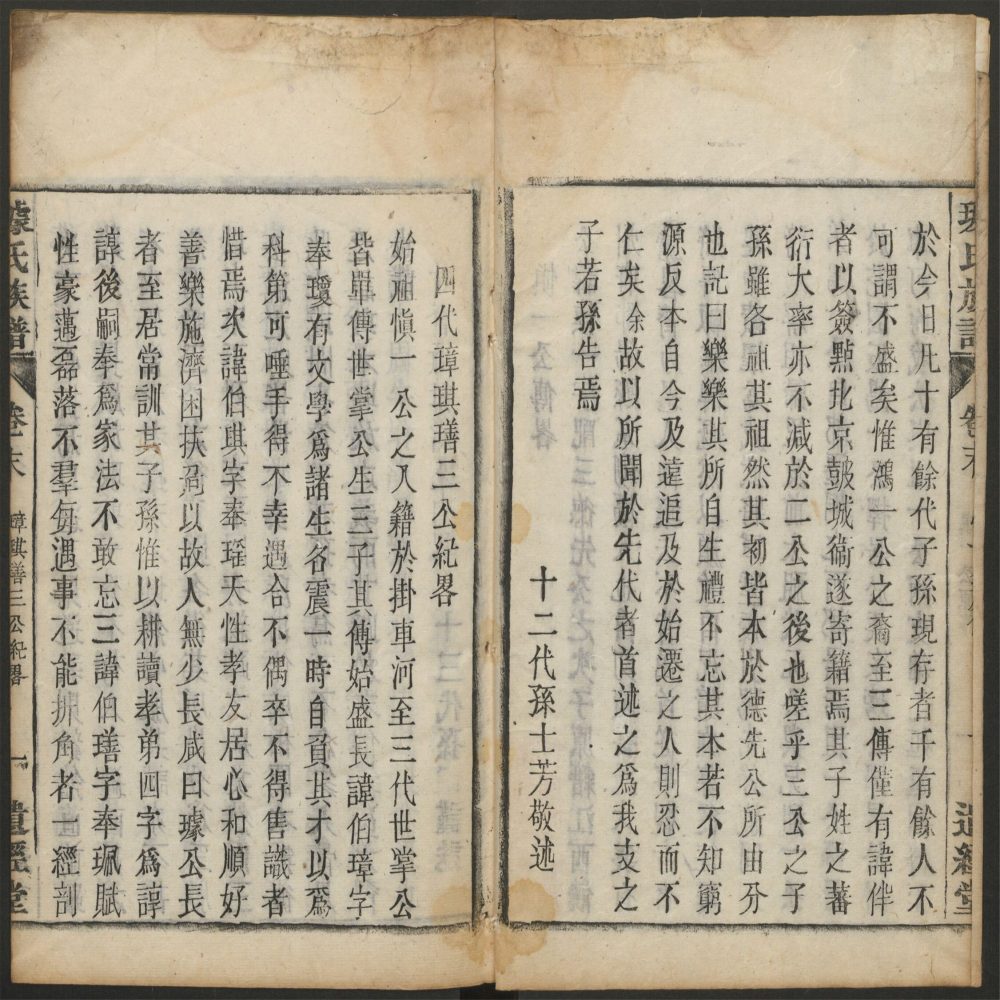 璩氏族譜 卷末 一 遺經堂
於今日凡十有餘代子孫現存者千有餘人不
可謂不盛矣惟鴻一公之裔至三傳僅有諱伴
者以簽點北京皷城衛遂寄籍焉其子姓之蕃
衍大率亦不減於二公之後也嗟乎三公之子
孫雖各祖其祖然其初皆本於德先公所由分
也記曰樂樂其所自生禮不忘其本若不知窮
源反本自今及遠追及於始遷之人則忍而不
仁矣余故以所聞於先代者首述之爲我支之
子若孫告焉
十二代孫士芳敬述
四代璋琪璓三公紀畧
始祖愼一公之入籍於掛車河至三代世掌公
皆單傳世掌公生三子其傳始盛長諱伯璋字
奉瓊有文學爲諸生名震一時自負其才以爲
科第可唾手得不幸遇合不偶卒不得售識者
惜焉次諱伯琪字奉瑤天性孝友居心和順好
善樂施濟困扶危以故人無少長咸曰璩公長
者至居常訓其子孫惟以耕讀孝弟四字爲諄
諄後嗣奉爲家法不敢忘三諱伯璓字奉珮賦
性豪邁磊落不羣毎遇事不能捔角者一經剖
璩氏族譜 卷末 璋琪璓三公紀畧 一 遺經堂